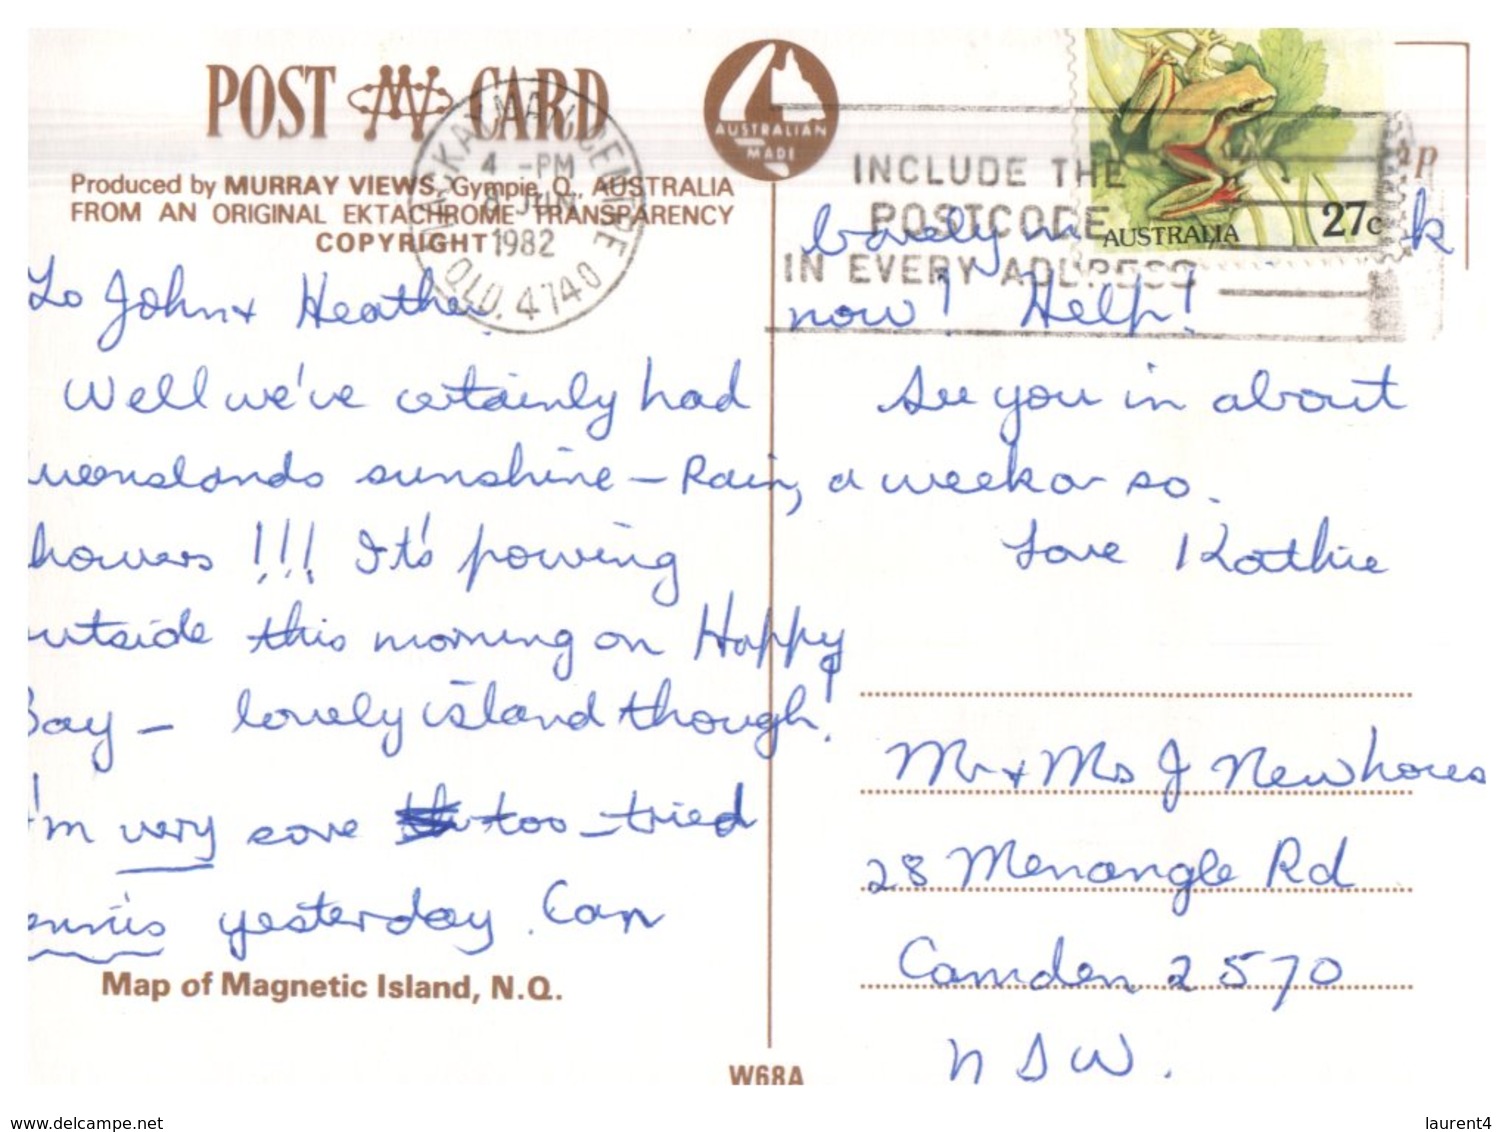 POST CARD
AUSTRALIAN
MADE
Produced by MURRAY VIEWS, Gympie, Q., AUSTRALIA
FROM AN ORIGINAL EKTACHROME TRANSPARENCY
COPYRIGHT
MACKAY MAIL CENTRE
4 -PM
8 JUN
1982
QLD. 4740
To John & Heather,
Well we've certainly had
ueenslands sunshine - Rain,
howers !!! It's pouring
utside this morning on Happy
Bay - lovely island though!
I'm very sore too - tried
ennis yesterday. Can
Map of Magnetic Island, N.Q.
INCLUDE THE
POSTCODE
IN EVERY ADDRESS
AUSTRALIA 27c
barely
now! Help!
See you in about
a week or so.
Love Kathie
Mr & Mrs J Newhouse
28 Menangle Rd
Camden 2570
NSW.
W68A
delcampe.net
laurent4